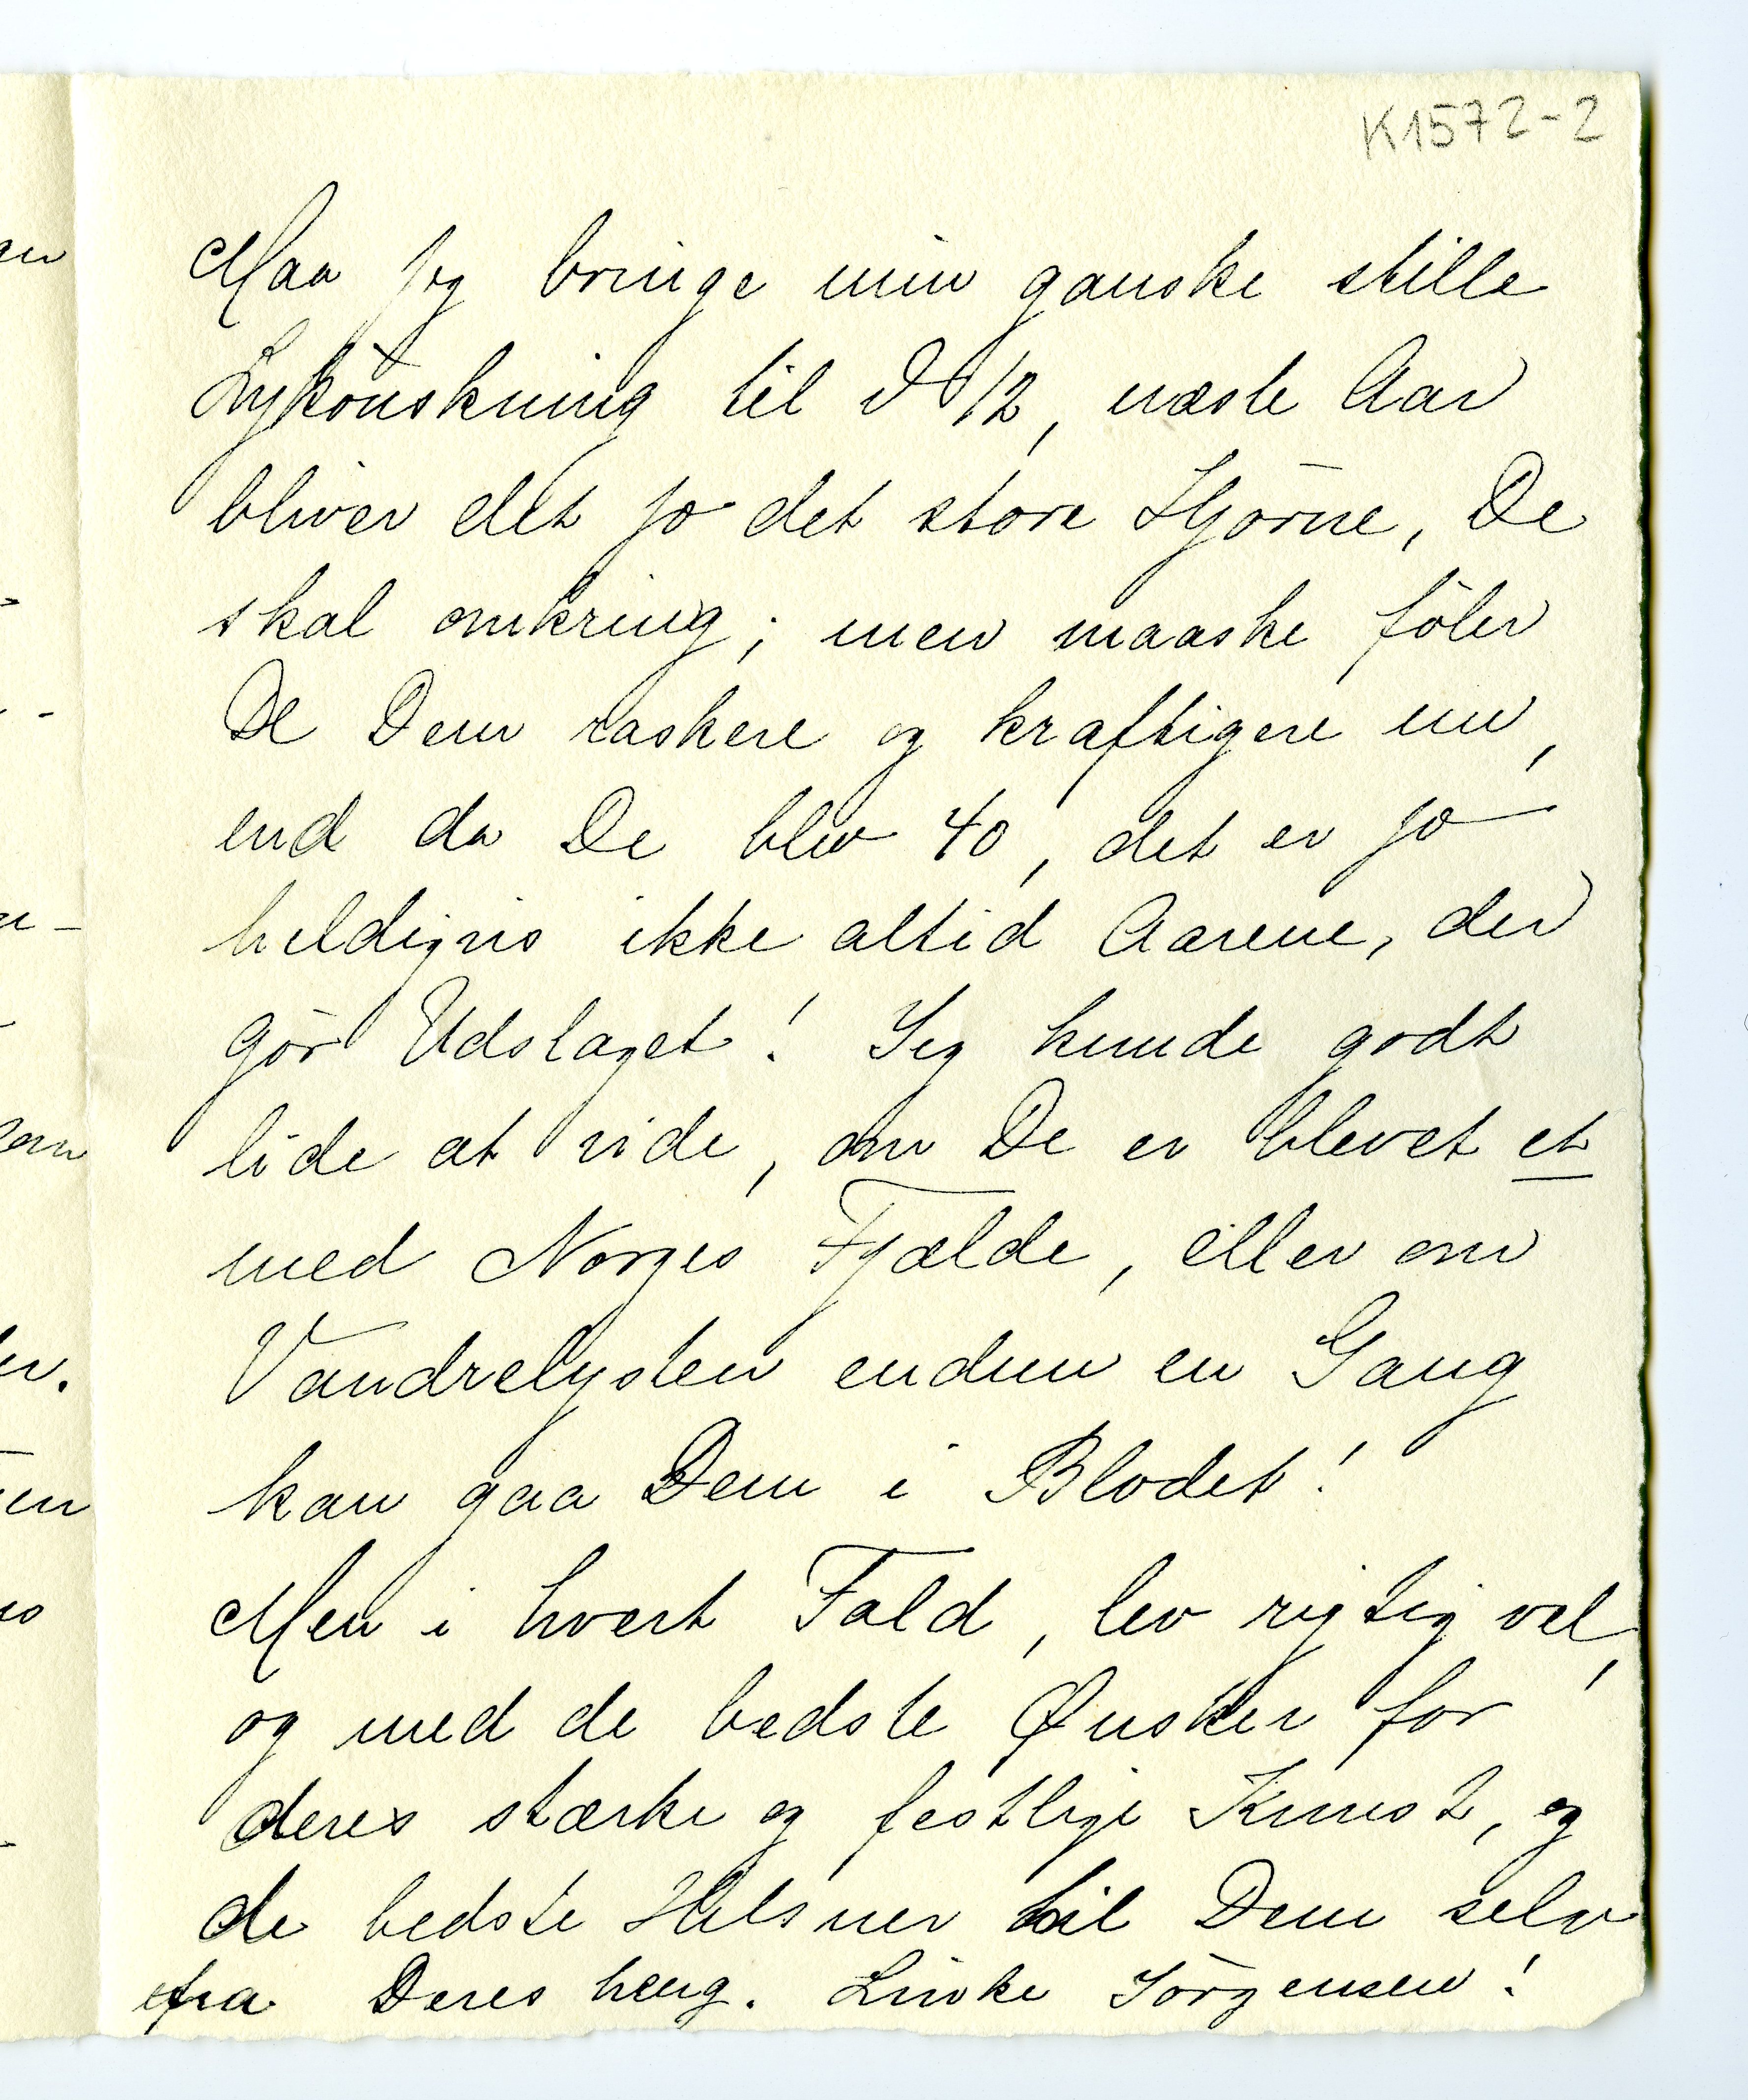 K1572-2
Maa jeg bringe min ganske stille
Lykönskning til d 12, næste Aar
bliver det jo det store Hjörne, De
skal omkring; men maaske föler
De Dem raskere og kraftigere nu,
end da De blev 40, det er jo
heldigvis ikke altid Aarene, der
gör Udslaget! Jeg kunde godt
lide at vide, om De er blevet et
med Norges Fjælde, eller om
Vandrelysten endnu en Gang
kan gaa Dem i Blodet!
Men i hvert Fald, lev rigtig vel,
og med de bedste Ønsker for
deres stærke og festlige Kunst, og
de bedste Hilsner til Dem selv
fra Deres heng. Linke Jörgensen!